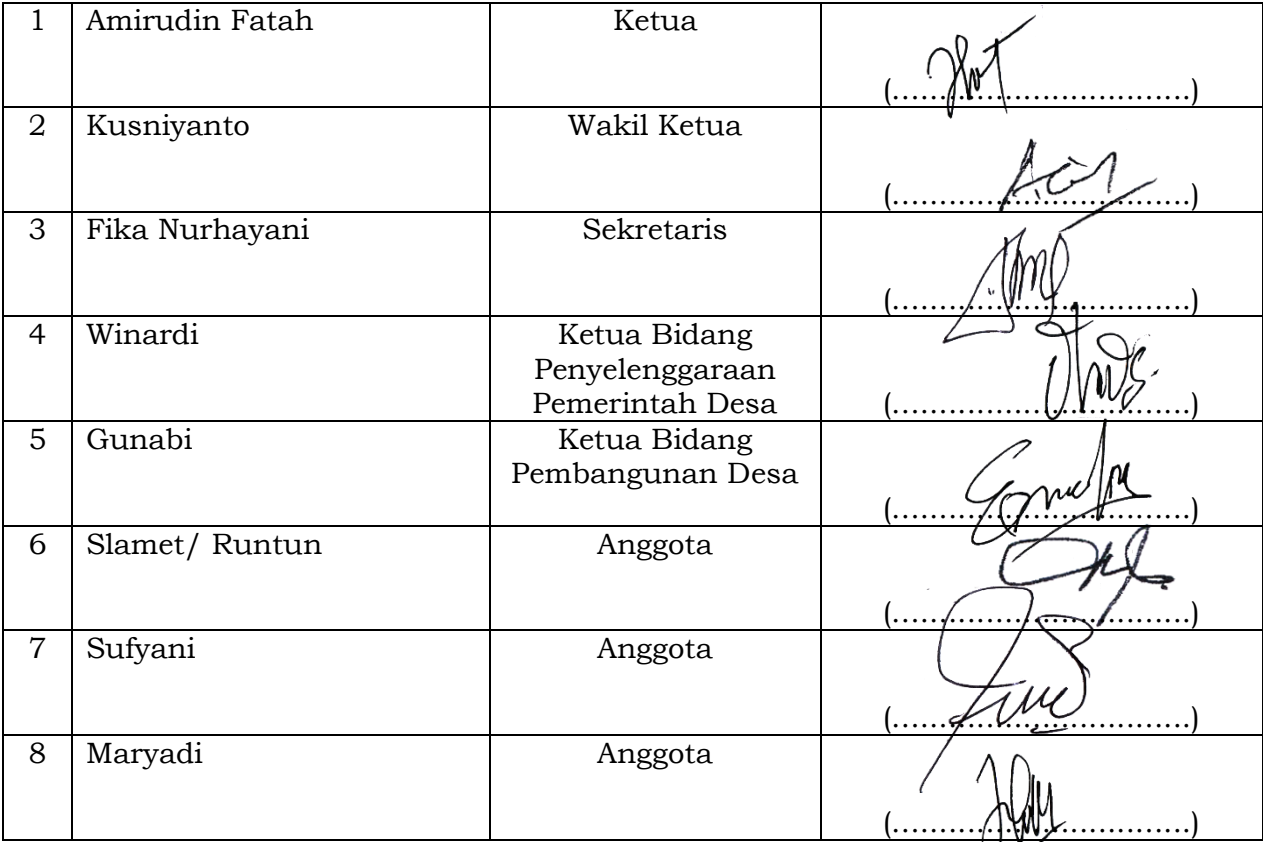 1 Amirudin Fatah Ketua
(....................................)
2 Kusniyanto Wakil Ketua
(....................................)
3 Fika Nurhayani Sekretaris
(....................................)
4 Winardi Ketua Bidang
Penyelenggaraan
Pemerintah Desa (....................................)
5 Gunabi Ketua Bidang
Pembangunan Desa
(....................................)
6 Slamet/ Runtun Anggota
(....................................)
7 Sufyani Anggota
(....................................)
8 Maryadi Anggota
(....................................)